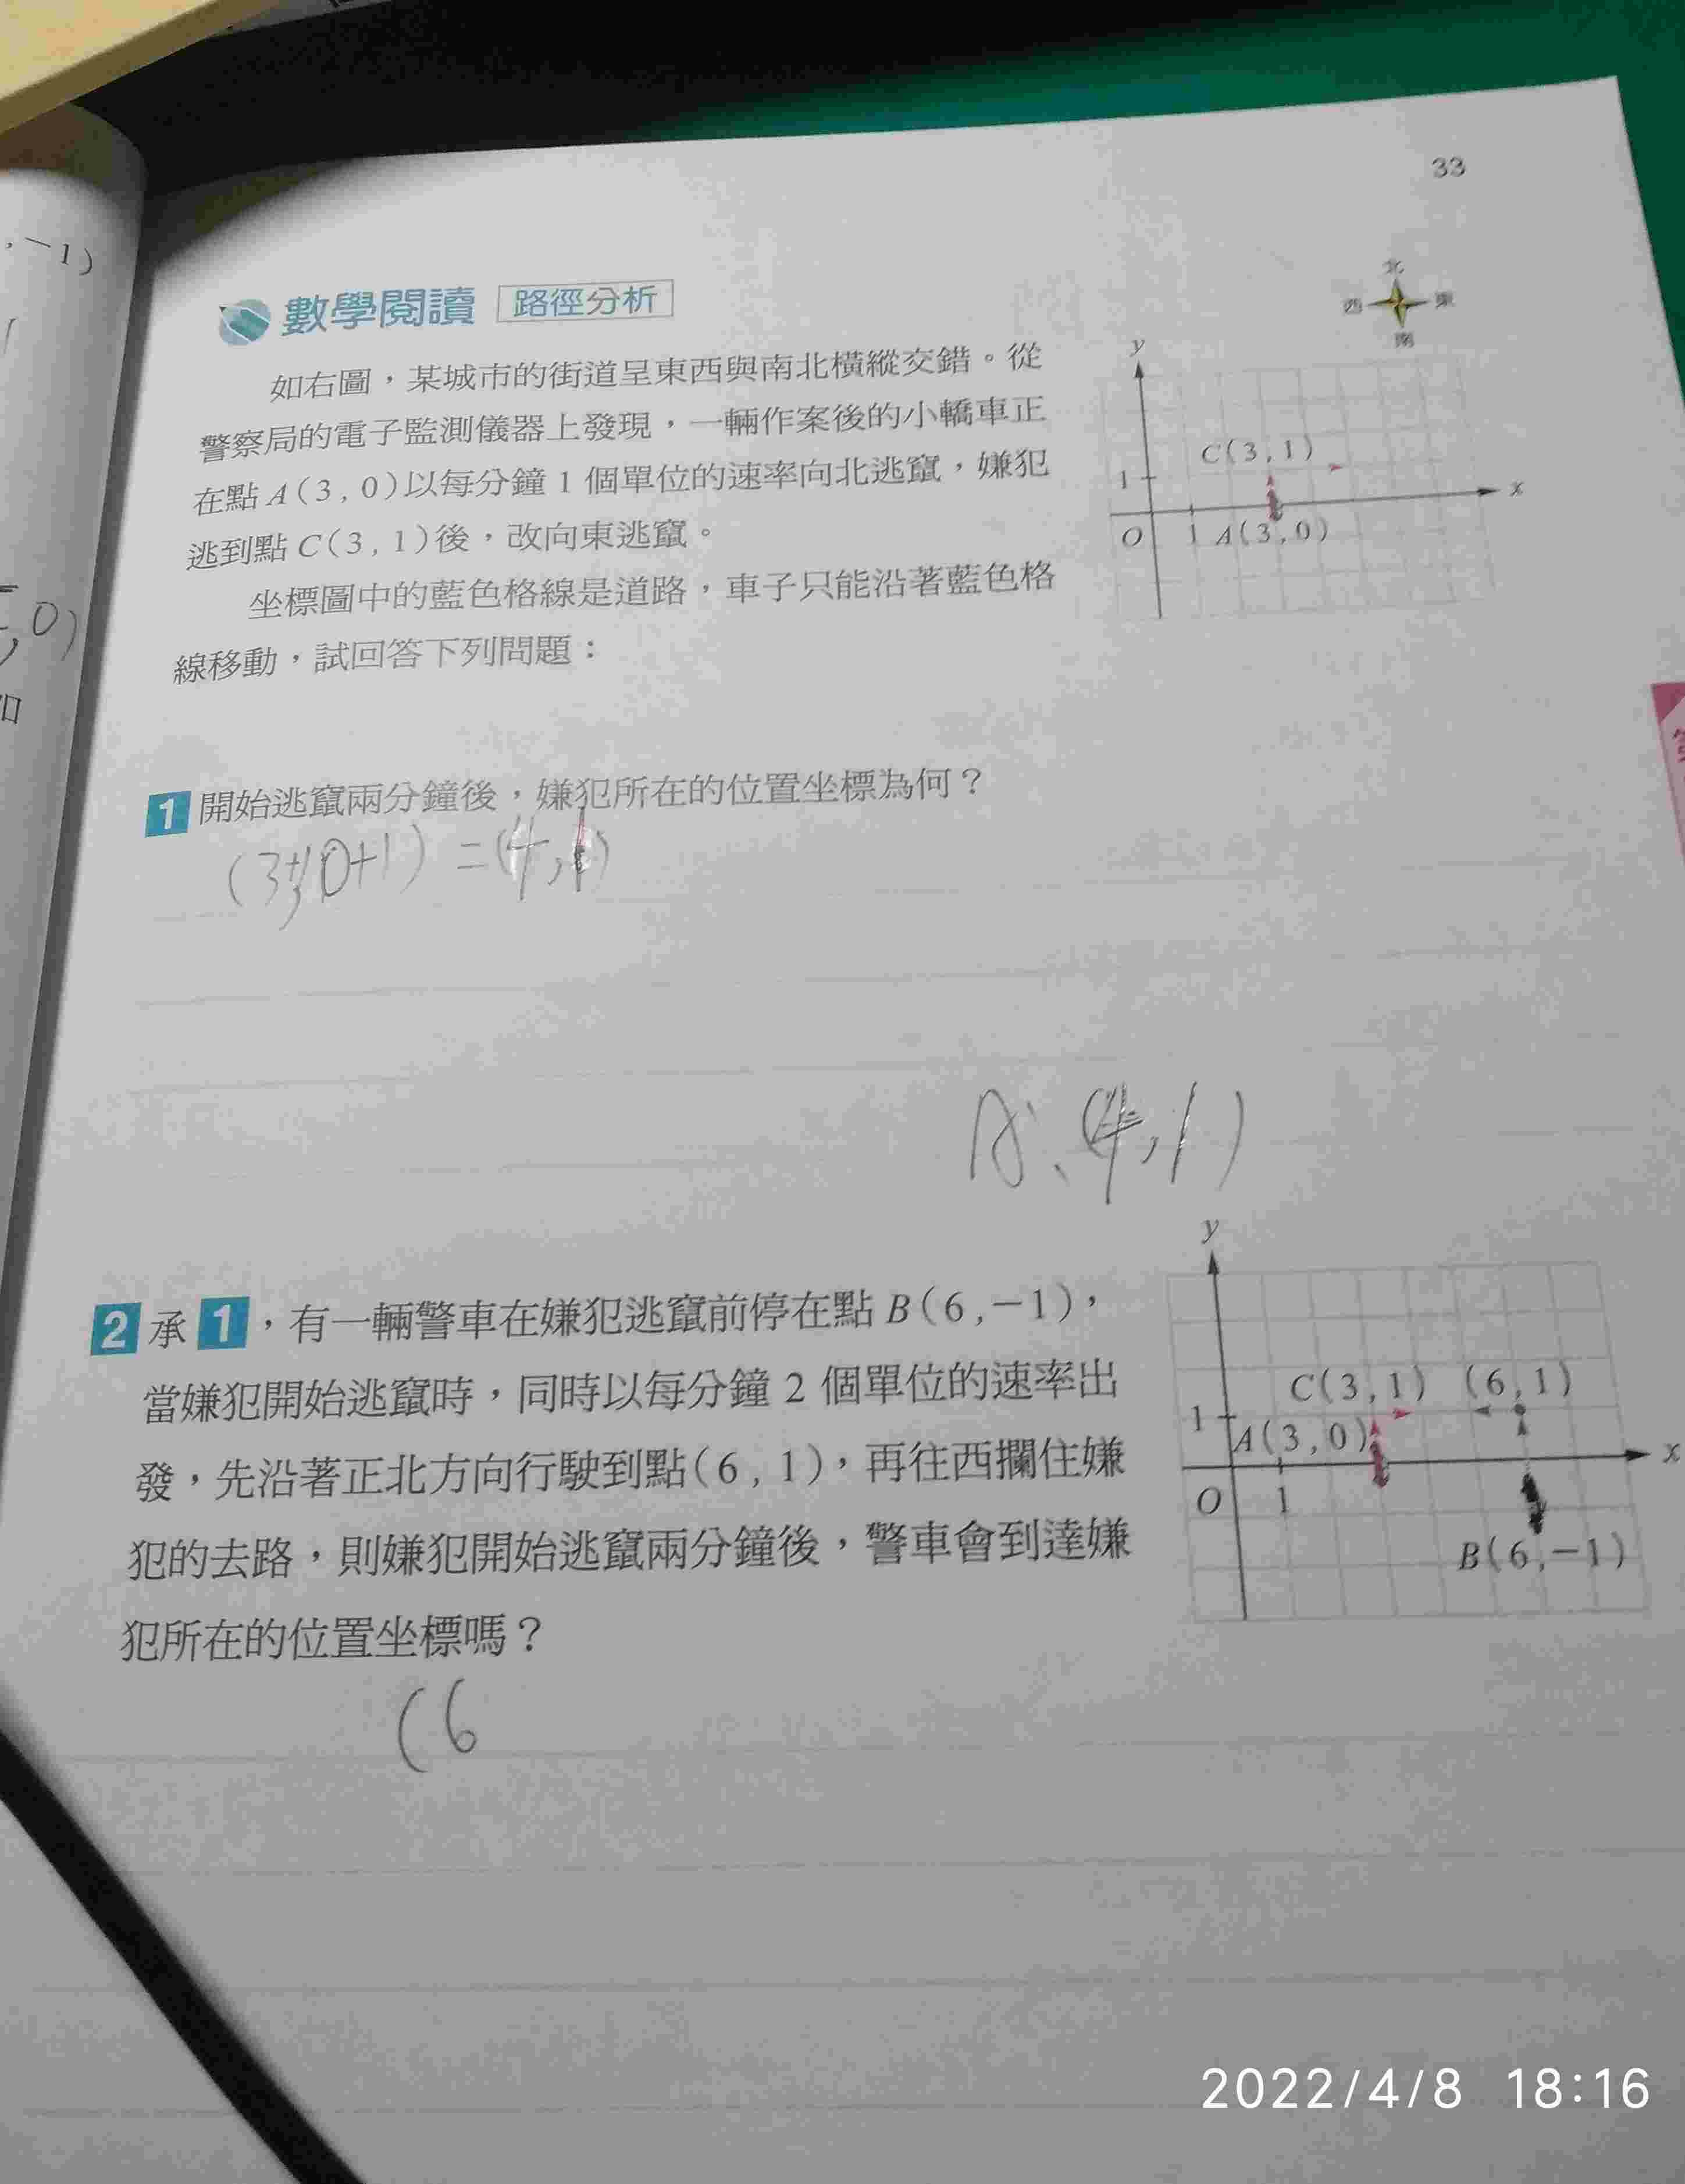 33
,-1)
,0)
數學閱讀 路徑分析
如右圖，某城市的街道呈東西與南北橫縱交錯。從
警察局的電子監測儀器上發現，一輛作案後的小轎車正
在點A(3,0)以每分鐘1個單位的速率向北逃竄，嫌犯
逃到點C(3,1)後，改向東逃竄。
坐標圖中的藍色格線是道路，車子只能沿著藍色格
線移動，試回答下列問題：
北
西 東
南
y
C(3,1)
1
x
O 1 A(3,0)
1 開始逃竄兩分鐘後，嫌犯所在的位置坐標為何？
(3+1,0+1)=(4,1)
A:(4,1)
2 承1，有一輛警車在嫌犯逃竄前停在點B(6,-1)，
當嫌犯開始逃竄時，同時以每分鐘2個單位的速率出
發，先沿著正北方向行駛到點(6,1)，再往西攔住嫌
犯的去路，則嫌犯開始逃竄兩分鐘後，警車會到達嫌
犯所在的位置坐標嗎？
y
C(3,1) (6,1)
1
A(3,0)
x
O 1
B(6,-1)
(6
2022/4/8 18:16